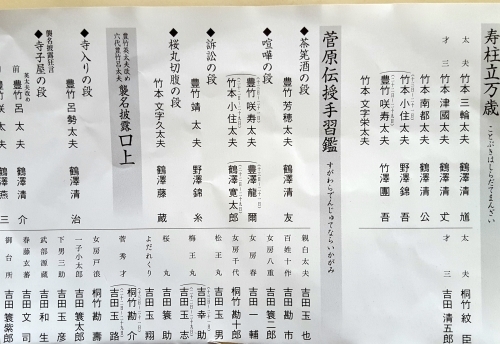 寿柱立万歳
ことぶきはしらだてまんざい
太夫 竹本三輪太夫
才三 竹本津國太夫
竹本南都太夫
竹本小住太夫
豊竹咲寿太夫
竹本文字栄太夫
鶴澤清馗
鶴澤清𠀋
鶴澤清公
野澤錦吾
竹澤團吾
太夫 桐竹紋臣
才三 吉田清五郎
菅原伝授手習鑑
すがわらでんじゅてならいかがみ
◆茶筅酒の段
豊竹芳穂太夫
鶴澤清友
◆喧嘩の段
豊竹咲寿太夫
竹本小住太夫
豊澤龍爾
鶴澤寛太郎
◆訴訟の段
豊竹靖太夫
野澤錦糸
◆桜丸切腹の段
竹本文字久太夫
鶴澤藤蔵
豊竹英太夫改め
六代豊竹呂太夫
襲名披露口上
◆寺入りの段
豊竹呂勢太夫
鶴澤清治
襲名披露狂言
◆寺子屋の段
英太夫改め
前 豊竹呂太夫
鶴澤清介
豊竹咲太夫
鶴澤燕三
親白太夫 吉田玉也
百姓十作 吉田勘市
女房八重 吉田簑二郎
女房春 吉田一輔
女房千代 桐竹勘十郎
松王丸 吉田玉男
梅王丸 吉田幸助
吉田玉志
桜丸 吉田簑助
よだれくり 吉田玉翔
菅秀才 桐竹勘介
吉田玉路
女房戸浪 桐竹勘壽
一子小太郎 吉田簑太郎
下男三助 吉田玉彦
武部源蔵 吉田和生
春藤玄蕃 吉田文司
御台所 吉田簑紫郎